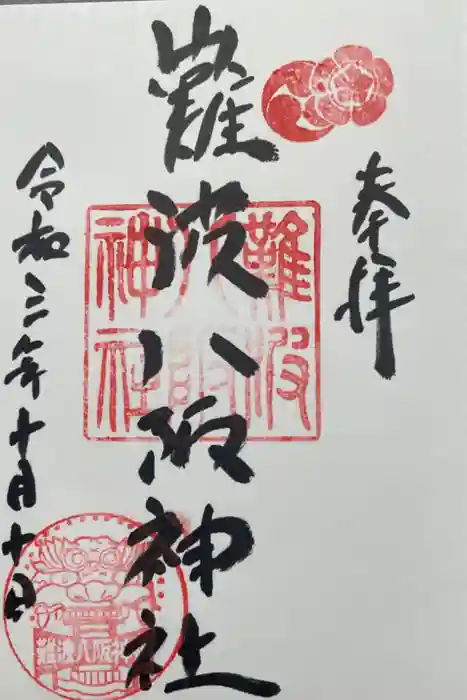 奉拝
難波八阪神社
難波
八阪
神社
令和三年十月十日
難波八阪神社